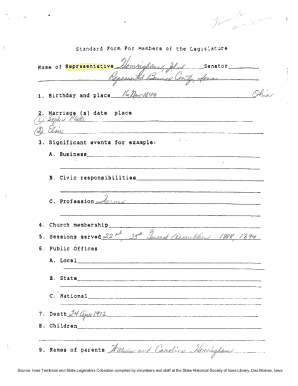 Standard Form For Members of the Legislature
Name of Representative John Senator
Represented County, Iowa
1. Birthday and place 16 Nov 1844 Ohio
2. Marriage (s) date place
(1)
(2)
3. Significant events for example:
A. Business
B. Civic responsibilities
C. Profession Farmer
4. Church membership
5. Sessions served 22nd, 25th General Assemblies 1888, 1894
6. Public Offices
A. Local
B. State
C. National
7. Death 24 Apr 1912
8. Children
9. Names of parents William and Caroline
Source: Iowa Territorial and State Legislators Collection compiled by volunteers and staff at the State Historical Society of Iowa Library, Des Moines, Iowa.